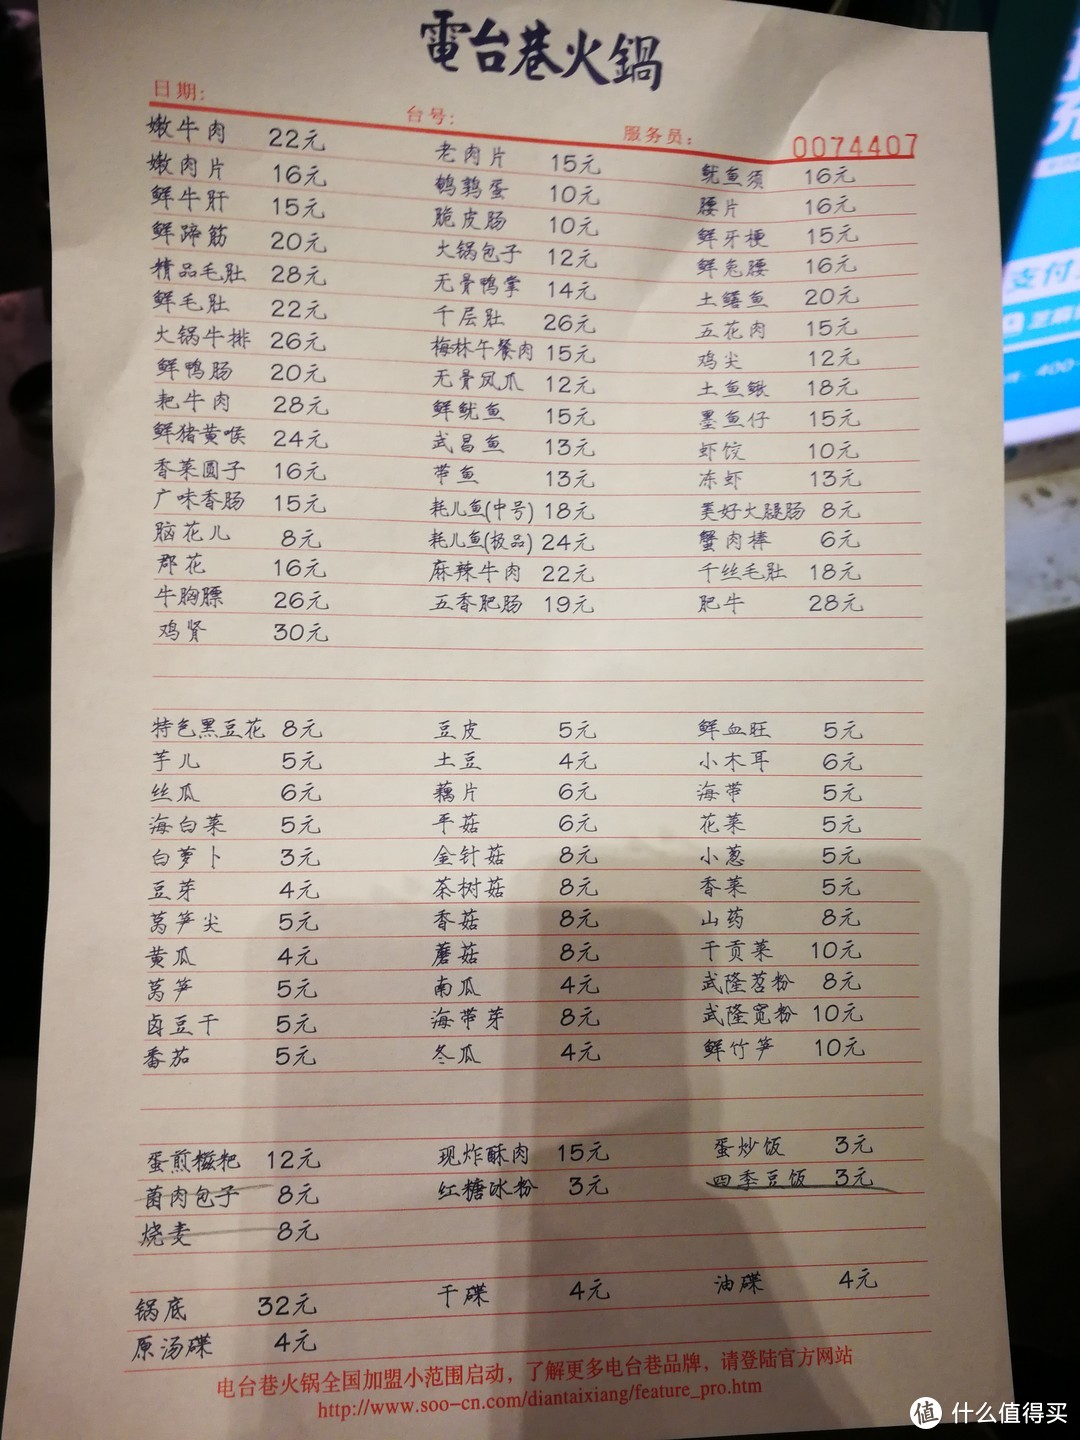 電台巷火鍋
日期: 台号: 服务员: 0074407
嫩牛肉 22元 老肉片 15元 鱿鱼须 16元
嫩肉片 16元 鹌鹑蛋 10元 腰片 16元
鲜牛肝 15元 脆皮肠 10元 鲜牙梗 15元
鲜蹄筋 20元 火锅包子 12元 鲜兔腰 16元
精品毛肚 28元 无骨鸭掌 14元 土鳝鱼 20元
鲜毛肚 22元 千层肚 26元 五花肉 15元
火锅牛排 26元 梅林午餐肉 15元 鸡尖 12元
鲜鸭肠 20元 无骨凤爪 12元 土鱼鳅 18元
耙牛肉 28元 鲜鱿鱼 15元 墨鱼仔 15元
鲜猪黄喉 24元 武昌鱼 13元 虾饺 10元
香菜圆子 16元 带鱼 13元 冻虾 13元
广味香肠 15元 耗儿鱼(中号) 18元 美好火腿肠 8元
脑花儿 8元 耗儿鱼(极品) 24元 蟹肉棒 6元
郡花 16元 麻辣牛肉 22元 千丝毛肚 18元
牛胸膘 26元 五香肥肠 19元 肥牛 28元
鸡肾 30元
特色黑豆花 8元 豆皮 5元 鲜血旺 5元
芋儿 5元 土豆 4元 小木耳 6元
丝瓜 6元 藕片 6元 海带 5元
海白菜 5元 平菇 6元 花菜 5元
白萝卜 3元 金针菇 8元 小葱 5元
豆芽 4元 茶树菇 8元 香菜 5元
莴笋尖 5元 香菇 8元 山药 8元
黄瓜 4元 蘑菇 8元 干贡菜 10元
莴笋 5元 南瓜 4元 武隆苕粉 8元
卤豆干 5元 海带芽 8元 武隆宽粉 10元
番茄 5元 冬瓜 4元 鲜竹笋 10元
蛋煎糍粑 12元 现炸酥肉 15元 蛋炒饭 3元
菌肉包子 8元 红糖冰粉 3元 四季豆饭 3元
烧麦 8元
锅底 32元 干碟 4元 油碟 4元
原汤碟 4元
电台巷火锅全国加盟小范围启动，了解更多电台巷品牌，请登陆官方网站
http://www.soo-cn.com/diantaixiang/feature_pro.htm
支付
400-
值 什么值得买